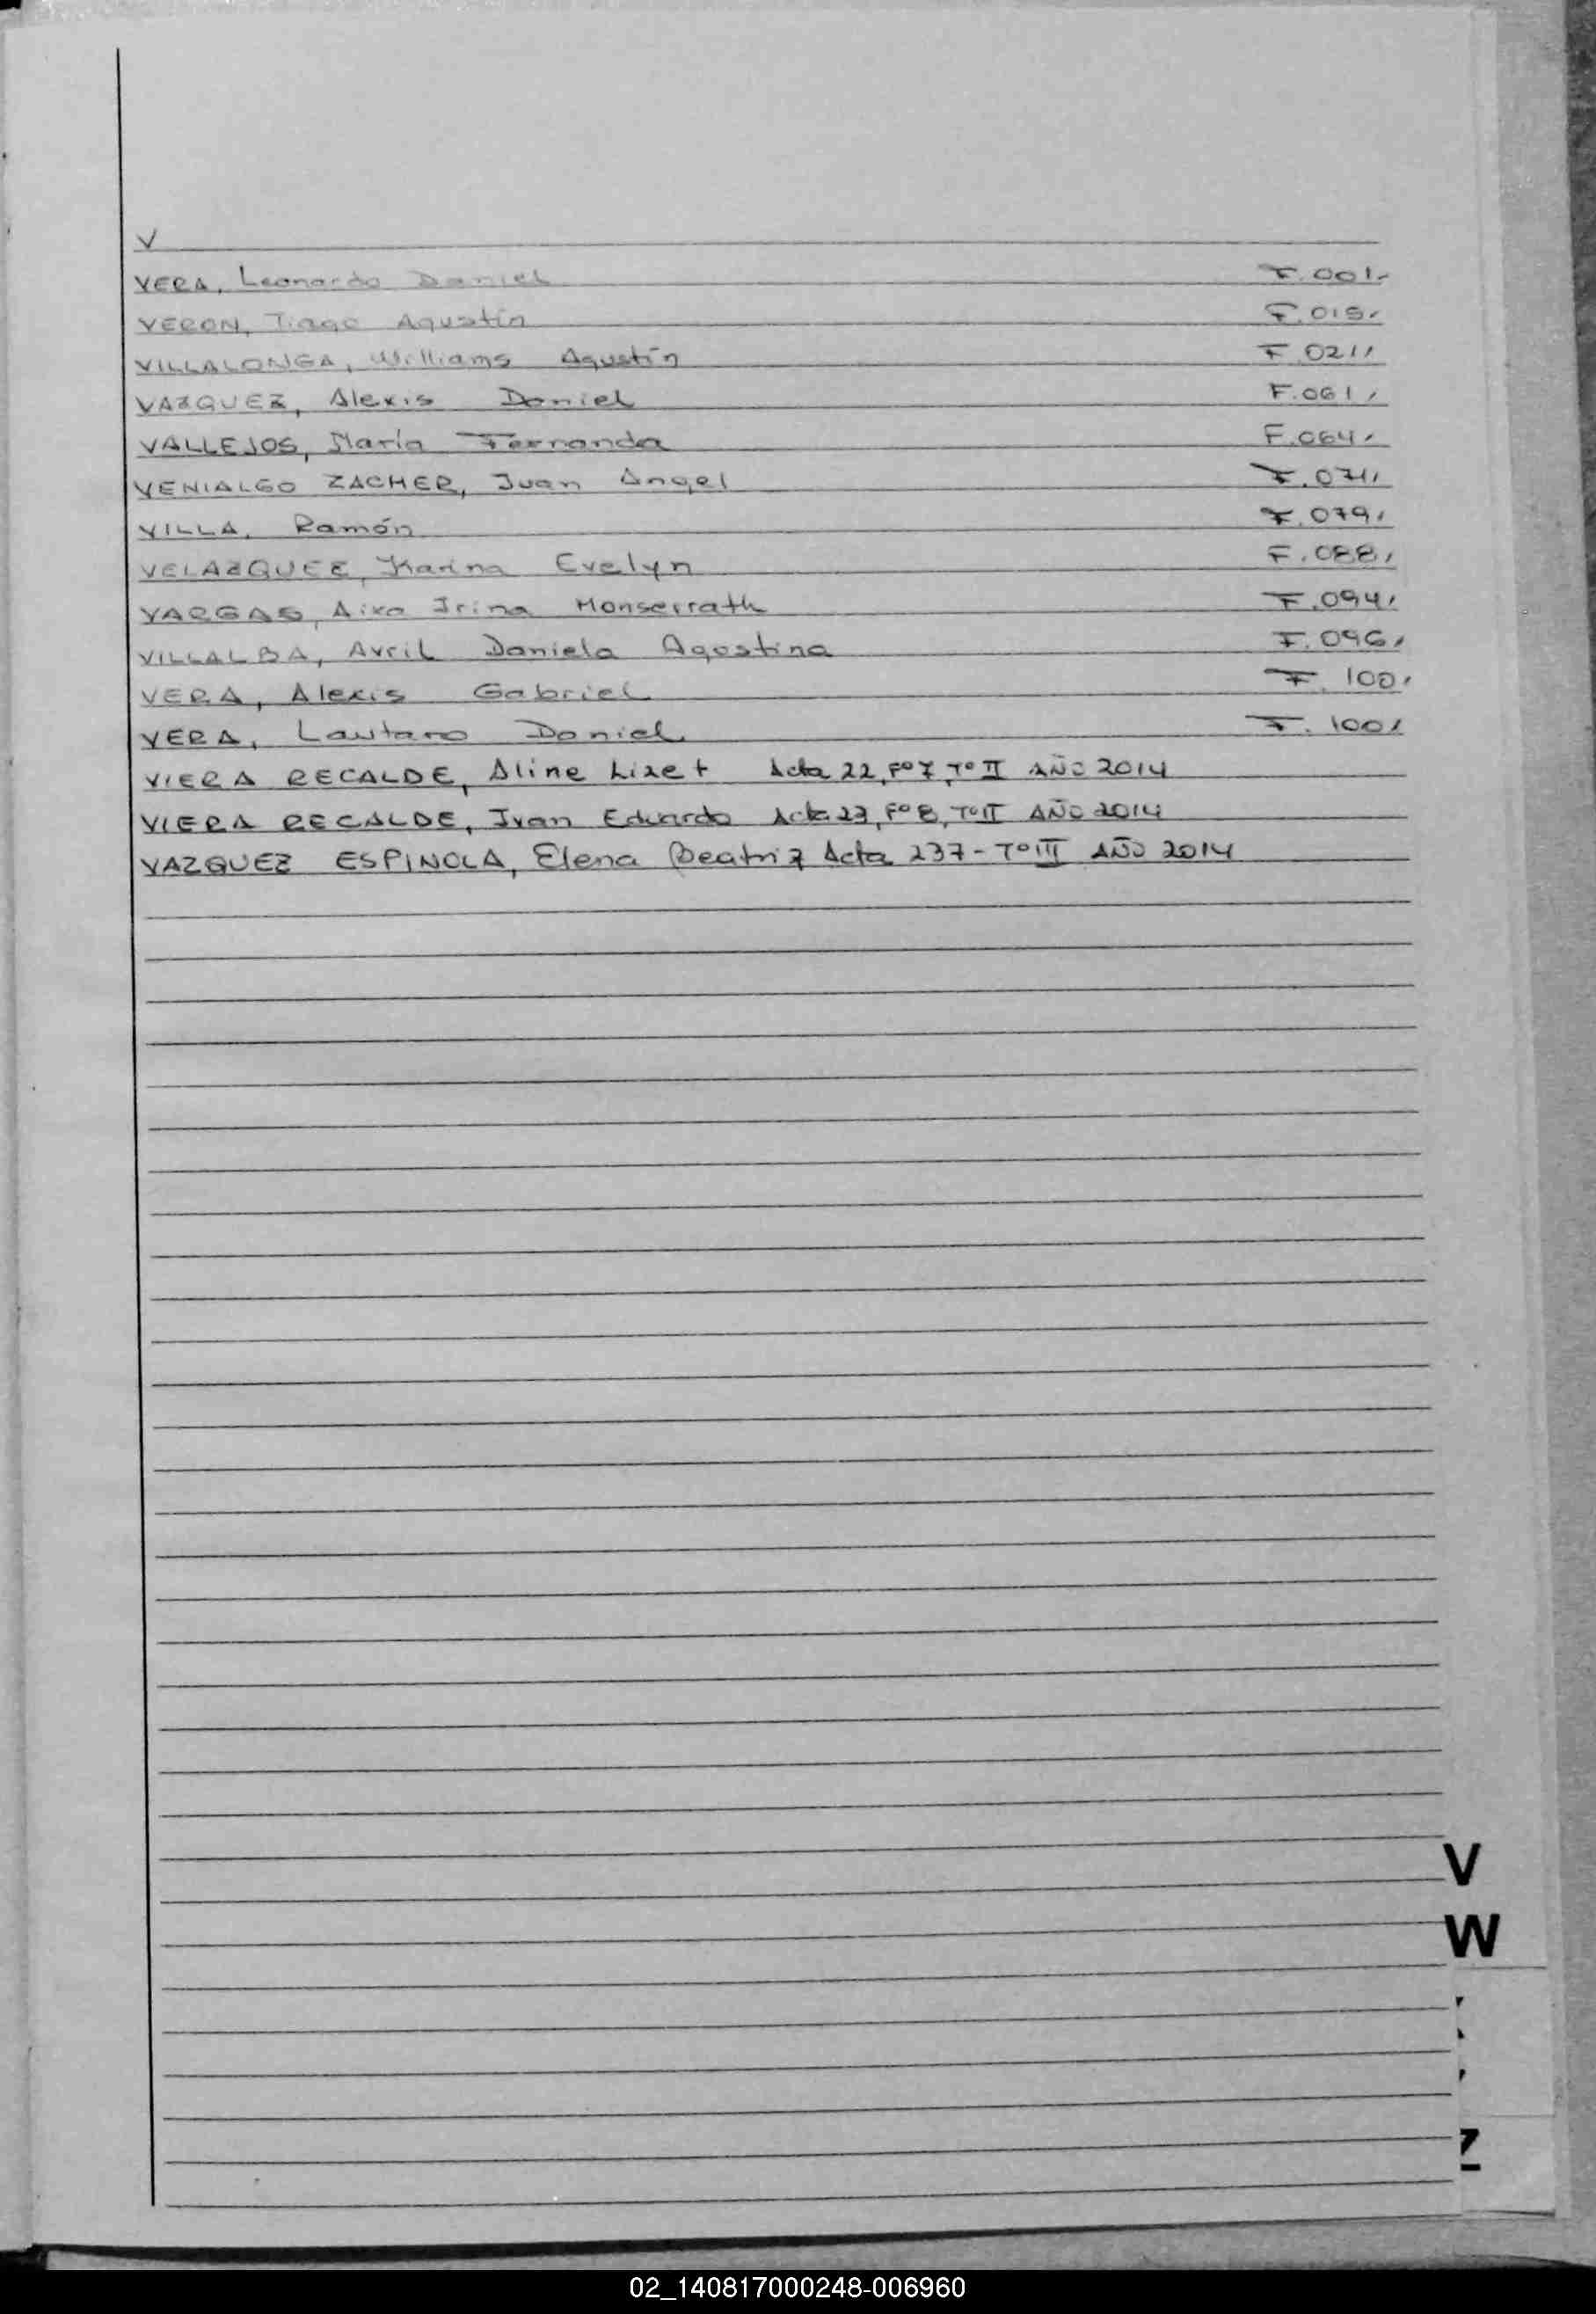 V
VERA, Leonardo Daniel F.001.-
VERON, Tiago Agustín F.015.
VILLALONGA, Williams Agustín F.021.
VAZQUEZ, Alexis Daniel F.061.
VALLEJOS, María Fernanda F.064.
VENIALGO ZACHER, Juan Angel F.071.
VILLA, Ramón F.079.
VELAZQUEZ, Karina Evelyn F.088.
VARGAS, Aixa Irina Monserrath F.094.
VILLALBA, Avril Daniela Agostina F.096.
VERA, Alexis Gabriel F. 100.
VERA, Lautaro Daniel. F. 100.
VIERA RECALDE, Aline Lizet Acta 22, Fº7, Tº II AÑO 2014
VIERA RECALDE, Ivan Eduardo Acta 23, Fº8, TºII AÑO 2014
VAZQUEZ ESPINOLA, Elena Beatriz Acta 237 - Tº III AÑO 2014
V
W
Z
02_140817000248-006960